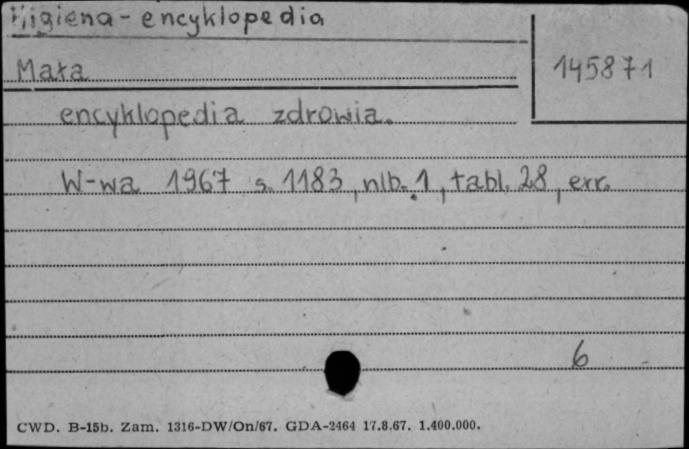 Higiena - encyklopedia
Mała
145871
encyklopedia zdrowia.
W-wa 1967 s. 1183, nlb. 1, tabl. 28, err.
6
CWD. B-15b. Zam. 1316-DW/On/67. GDA-2464 17.8.67. 1.400.000.